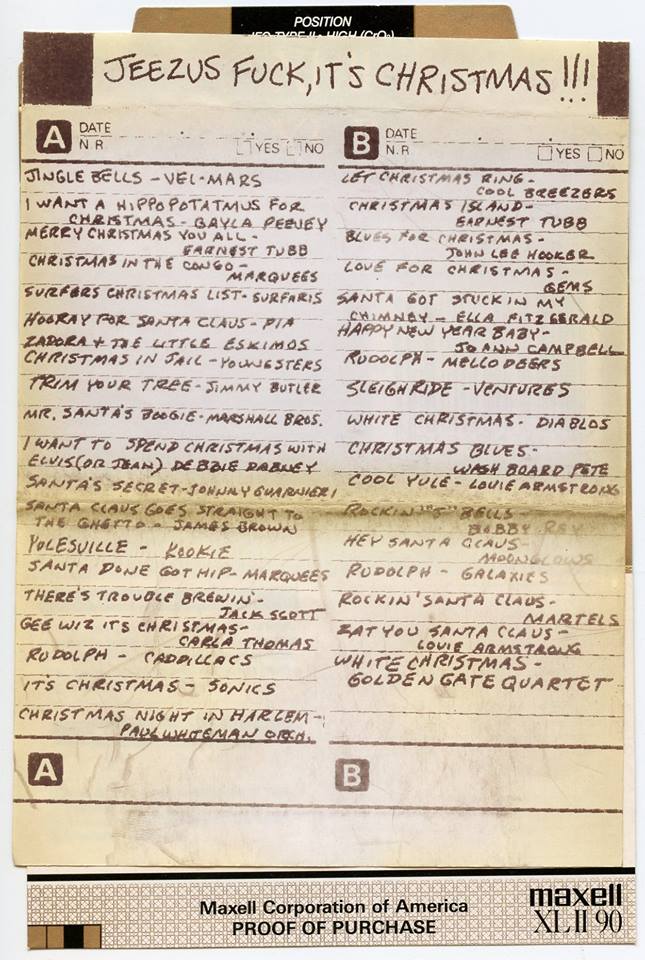 POSITION
IEC TYPE II • HIGH (CrO₂)
JEEZUS FUCK, IT'S CHRISTMAS!!!
A DATE
N.R YES NO
JINGLE BELLS - VEL-MARS
I WANT A HIPPOPOTATMUS FOR
CHRISTMAS - GAYLA PEEVEY
MERRY CHRISTMAS YOU ALL -
EARNEST TUBB
CHRISTMAS IN THE CONGO -
MARQUEES
SURFERS CHRISTMAS LIST - SURFARIS
HOORAY FOR SANTA CLAUS - PIA
ZADORA + THE LITTLE ESKIMOS
CHRISTMAS IN JAIL - YOUNGSTERS
TRIM YOUR TREE - JIMMY BUTLER
MR. SANTA'S BOOGIE - MARSHALL BROS.
I WANT TO SPEND CHRISTMAS WITH
ELVIS (OR JEAN) DEBBIE DABNEY
SANTA'S SECRET - JOHNNY GUARNIERI
SANTA CLAUS GOES STRAIGHT TO
THE GHETTO - JAMES BROWN
YULESVILLE - KOOKIE
SANTA DONE GOT HIP - MARQUEES
THERE'S TROUBLE BREWIN' -
JACK SCOTT
GEE WIZ IT'S CHRISTMAS -
CARLA THOMAS
RUDOLPH - CADDILACS
IT'S CHRISTMAS - SONICS
CHRISTMAS NIGHT IN HARLEM -
PAUL WHITEMAN ORCH.
A
B DATE
N.R. YES NO
LET CHRISTMAS RING -
COOL BREEZERS
CHRISTMAS ISLAND -
EARNEST TUBB
BLUES FOR CHRISTMAS -
JOHN LEE HOOKER
LOVE FOR CHRISTMAS -
GEMS
SANTA GOT STUCK IN MY
CHIMNEY - ELLA FITZGERALD
HAPPY NEW YEAR BABY -
JO ANN CAMPBELL
RUDOLPH - MELLO DEERS
SLEIGH RIDE - VENTURES
WHITE CHRISTMAS - DIABLOS
CHRISTMAS BLUES -
WASH BOARD PETE
COOL YULE - LOUIE ARMSTRONG
ROCKIN' "J" BELLS -
BOBBY REY
HEY SANTA CLAUS -
MOONGLOWS
RUDOLPH - GALAXIES
ROCKIN' SANTA CLAUS -
MARTELS
ZAT YOU SANTA CLAUS -
LOUIE ARMSTRONG
WHITE CHRISTMAS -
GOLDEN GATE QUARTET
B
Maxell Corporation of America
PROOF OF PURCHASE
maxell
XLII 90